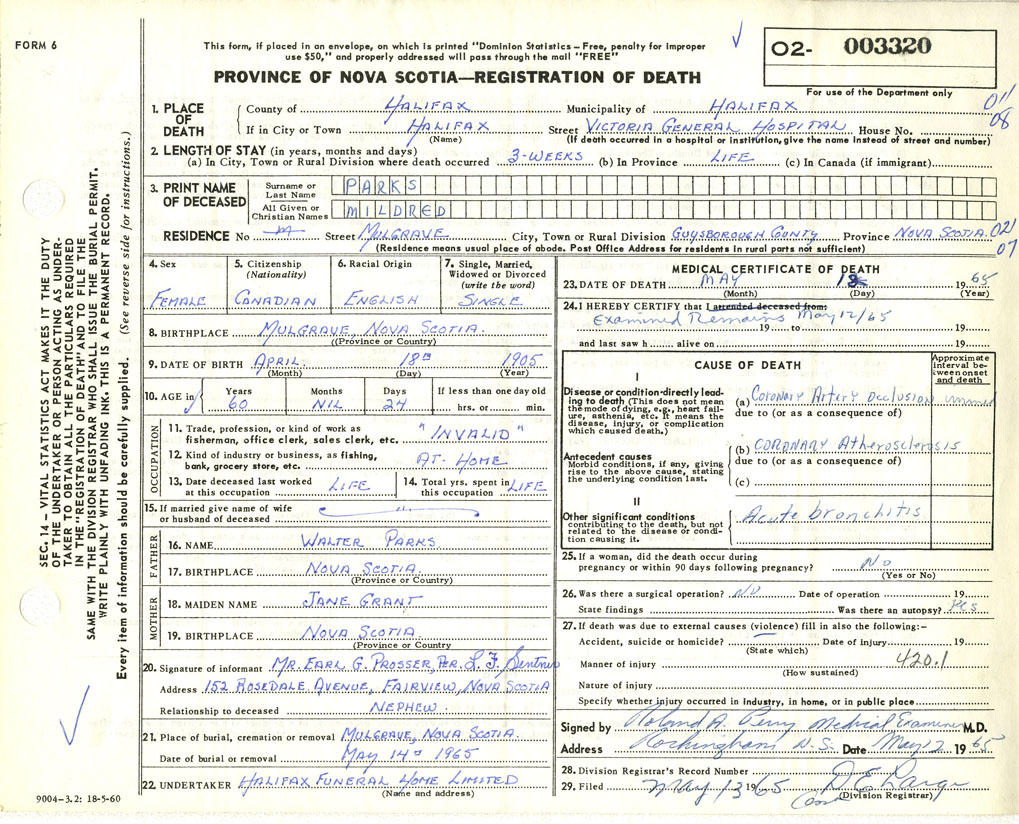 FORM 6
This form, if placed in an envelope, on which is printed "Dominion Statistics – Free, penalty for improper
use $50," and properly addressed will pass through the mail "FREE"
PROVINCE OF NOVA SCOTIA—REGISTRATION OF DEATH
O2- 003320
For use of the Department only
SEC. 14 – VITAL STATISTICS ACT MAKES IT THE DUTY
OF THE UNDERTAKER OR PERSON ACTING AS UNDER-
TAKER TO OBTAIN ALL THE PARTICULARS REQUIRED
IN THE "REGISTRATION OF DEATH" AND TO FILE THE
SAME WITH THE DIVISION REGISTRAR WHO SHALL ISSUE THE BURIAL PERMIT.
WRITE PLAINLY WITH UNFADING INK. THIS IS A PERMANENT RECORD.
Every item of information should be carefully supplied. (See reverse side for instructions.)
1. PLACE OF DEATH
County of HALIFAX Municipality of HALIFAX 011
If in City or Town HALIFAX Street VICTORIA GENERAL HOSPITAL House No. 08
(Name) (If death occurred in a hospital or institution, give the name instead of street and number)
2. LENGTH OF STAY (in years, months and days)
(a) In City, Town or Rural Division where death occurred 3-WEEKS (b) In Province LIFE (c) In Canada (if immigrant)
3. PRINT NAME OF DECEASED
Surname or Last Name PARKS
All Given or Christian Names MILDRED
RESIDENCE No Street MULGRAVE City, Town or Rural Division GUYSBOROUGH COUNTY Province NOVA SCOTIA. 02
(Residence means usual place of abode. Post Office Address for residents in rural parts not sufficient) 07
4. Sex FEMALE
5. Citizenship (Nationality) CANADIAN
6. Racial Origin ENGLISH
7. Single, Married, Widowed or Divorced (write the word) SINGLE
8. BIRTHPLACE MULGRAVE, NOVA SCOTIA.
(Province or Country)
9. DATE OF BIRTH APRIL 18th 1905
(Month) (Day) (Year)
10. AGE in Years 60 Months NIL Days 24 If less than one day old hrs. or min.
OCCUPATION
11. Trade, profession, or kind of work as fisherman, office clerk, sales clerk, etc. "INVALID"
12. Kind of industry or business, as fishing, bank, grocery store, etc. AT HOME
13. Date deceased last worked at this occupation LIFE
14. Total yrs. spent in this occupation LIFE
15. If married give name of wife or husband of deceased "
FATHER
16. NAME WALTER PARKS
17. BIRTHPLACE NOVA SCOTIA.
(Province or Country)
MOTHER
18. MAIDEN NAME JANE GRANT
19. BIRTHPLACE NOVA SCOTIA.
(Province or Country)
20. Signature of informant MR. EARL G. PROSSER, PER. L. F.
Address 152 ROSEDALE AVENUE, FAIRVIEW, NOVA SCOTIA
Relationship to deceased NEPHEW.
21. Place of burial, cremation or removal MULGRAVE, NOVA SCOTIA.
Date of burial or removal MAY 14th 1965
22. UNDERTAKER HALIFAX FUNERAL HOME LIMITED
(Name and address)
9004-3.2: 18-5-60
MEDICAL CERTIFICATE OF DEATH
23. DATE OF DEATH MAY 12 1965
(Month) (Day) (Year)
24. I HEREBY CERTIFY that I attended deceased from:
Examined Remains May 12/65
19 to 19
and last saw h alive on 19
CAUSE OF DEATH
Approximate interval between onset and death
I
Disease or condition directly leading to death (This does not mean the mode of dying, e.g., heart failure, asthenia, etc. It means the disease, injury, or complication which caused death.)
(a) Coronary Artery Occlusion
due to (or as a consequence of)
Antecedent causes
Morbid conditions, if any, giving rise to the above cause, stating the underlying condition last.
(b) CORONARY Atherosclerosis
due to (or as a consequence of)
(c)
II
Other significant conditions contributing to the death, but not related to the disease or condition causing it.
Acute bronchitis
25. If a woman, did the death occur during pregnancy or within 90 days following pregnancy? No
(Yes or No)
26. Was there a surgical operation? NO Date of operation 19
State findings Was there an autopsy? Yes
27. If death was due to external causes (violence) fill in also the following:–
Accident, suicide or homicide? Date of injury 19
(State which)
Manner of injury 420.1
(How sustained)
Nature of injury
Specify whether injury occurred in industry, in home, or in public place
Signed by Roland A. Perry Medical Examiner M.D.
Address Rockingham N.S. Date May 12 1965
28. Division Registrar's Record Number
29. Filed May 13 1965
(Division Registrar)